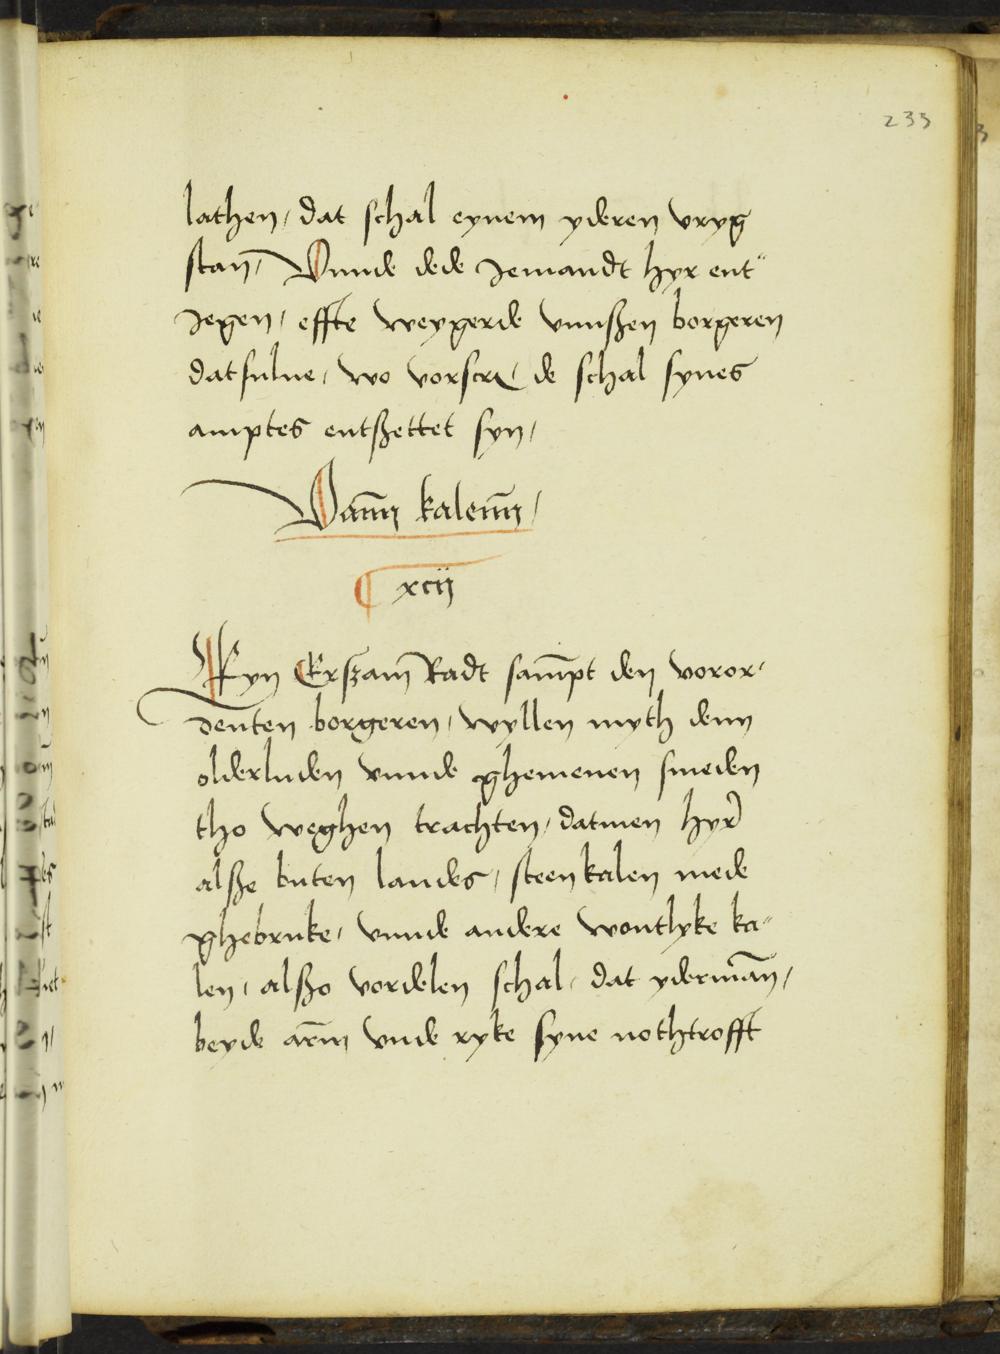 235
lathen, dat schal eynem yderen vryg
stan̄, Vnnde dede Jemandt hyr ent″
Jegen, effte weygerde vnnszen borgeren
datsulue, wo vorscr, de schal synes
amptes entszettet syn,
Vann̄ kalenn̄,
¶ xcij
Eyn Erszam̄ Radt sam̄pt den voror″
Denten borgeren, wyllen myth denn
olderluden vnnde ghemenen smeden
tho weghen trachten, datmen hyr̄
alsze buten landes, steenkalen mede
ghebruke, vnnde andere wontlyke ka″
len, alszo vordelen schal, dat yderman̄,
beyde arm̄ vnde ryke syne nothtrofft